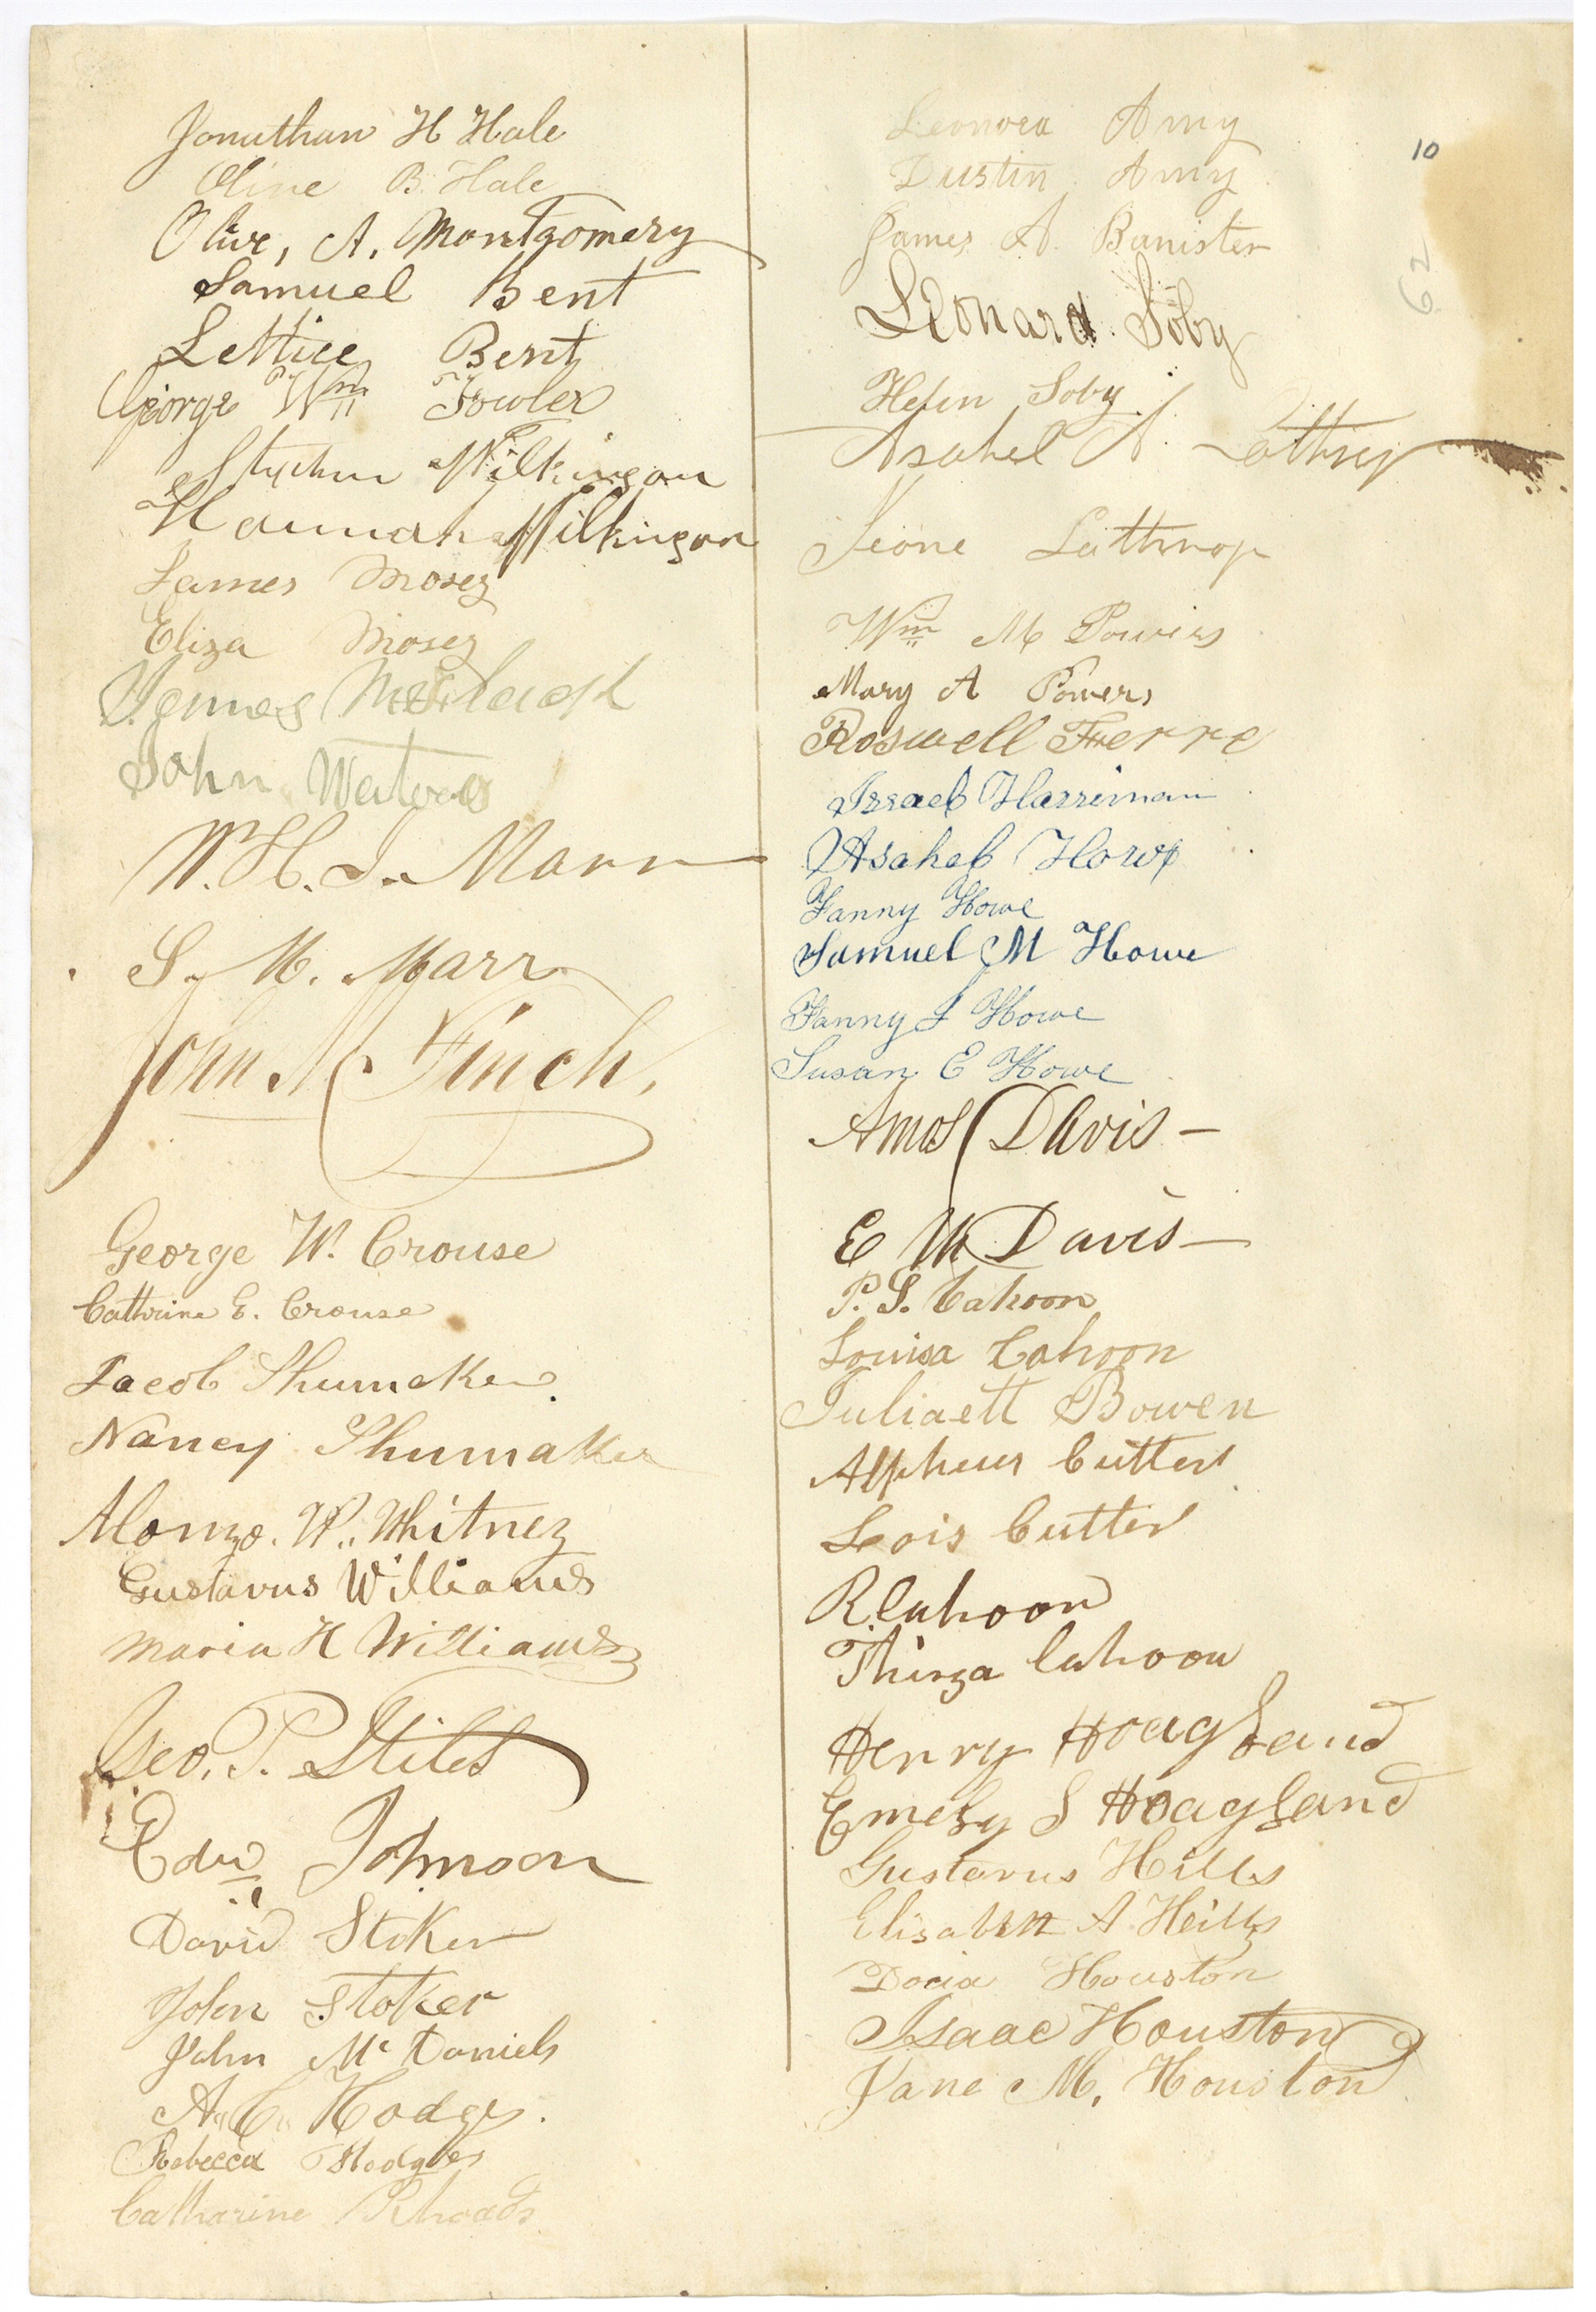 Jonathan H Hale
Olive B. Hale
Olive, A, Montgomery
Samuel Bent
Lettice Bent
George Wm Fowler
Stephen Wilkinson
Hannah Wilkinson
James Moses
Eliza Moses
James
John
W. H. J. Marr
S. M. Marr
John M Finch,
George W. Crouse
Cathrine E. Crouse
Jacob Shumaker
Nancy Shumaker
Alonzo. W. Whitney
Gustavus Williams
Maria H Williams
Geo. P. Stiles
Edw Johnson
David Stoker
John Stoker
John Mc Daniels
A. C. Hodge.
Rebecca Hodges
Catharine Rhoads
Leonora Amy
Dustin Amy
James A. Banister
Leonard Soby
Helen Soby
Asahel A Lathrop
Jeone Lathrop
Wm M Powers
Mary A Powers
Roswell Ferre
Israel Harriman
Asahel Howe
Fanny Howe
Samuel M Howe
Fanny J Howe
Susan E Howe
Amos Davis -
E M Davis -
P. S. Cahoon
Louisa Cahoon
Juliaett Bowen
Alpheus Cutler
Lois Cutler
R Cahoon
Thirza Cahoon
Henry Hoagland
Emely S Hoagland
Gustavus Hills
Elisabeth A Hills
Docia Houston
Isaac Houston
Jane M. Houston
10
62